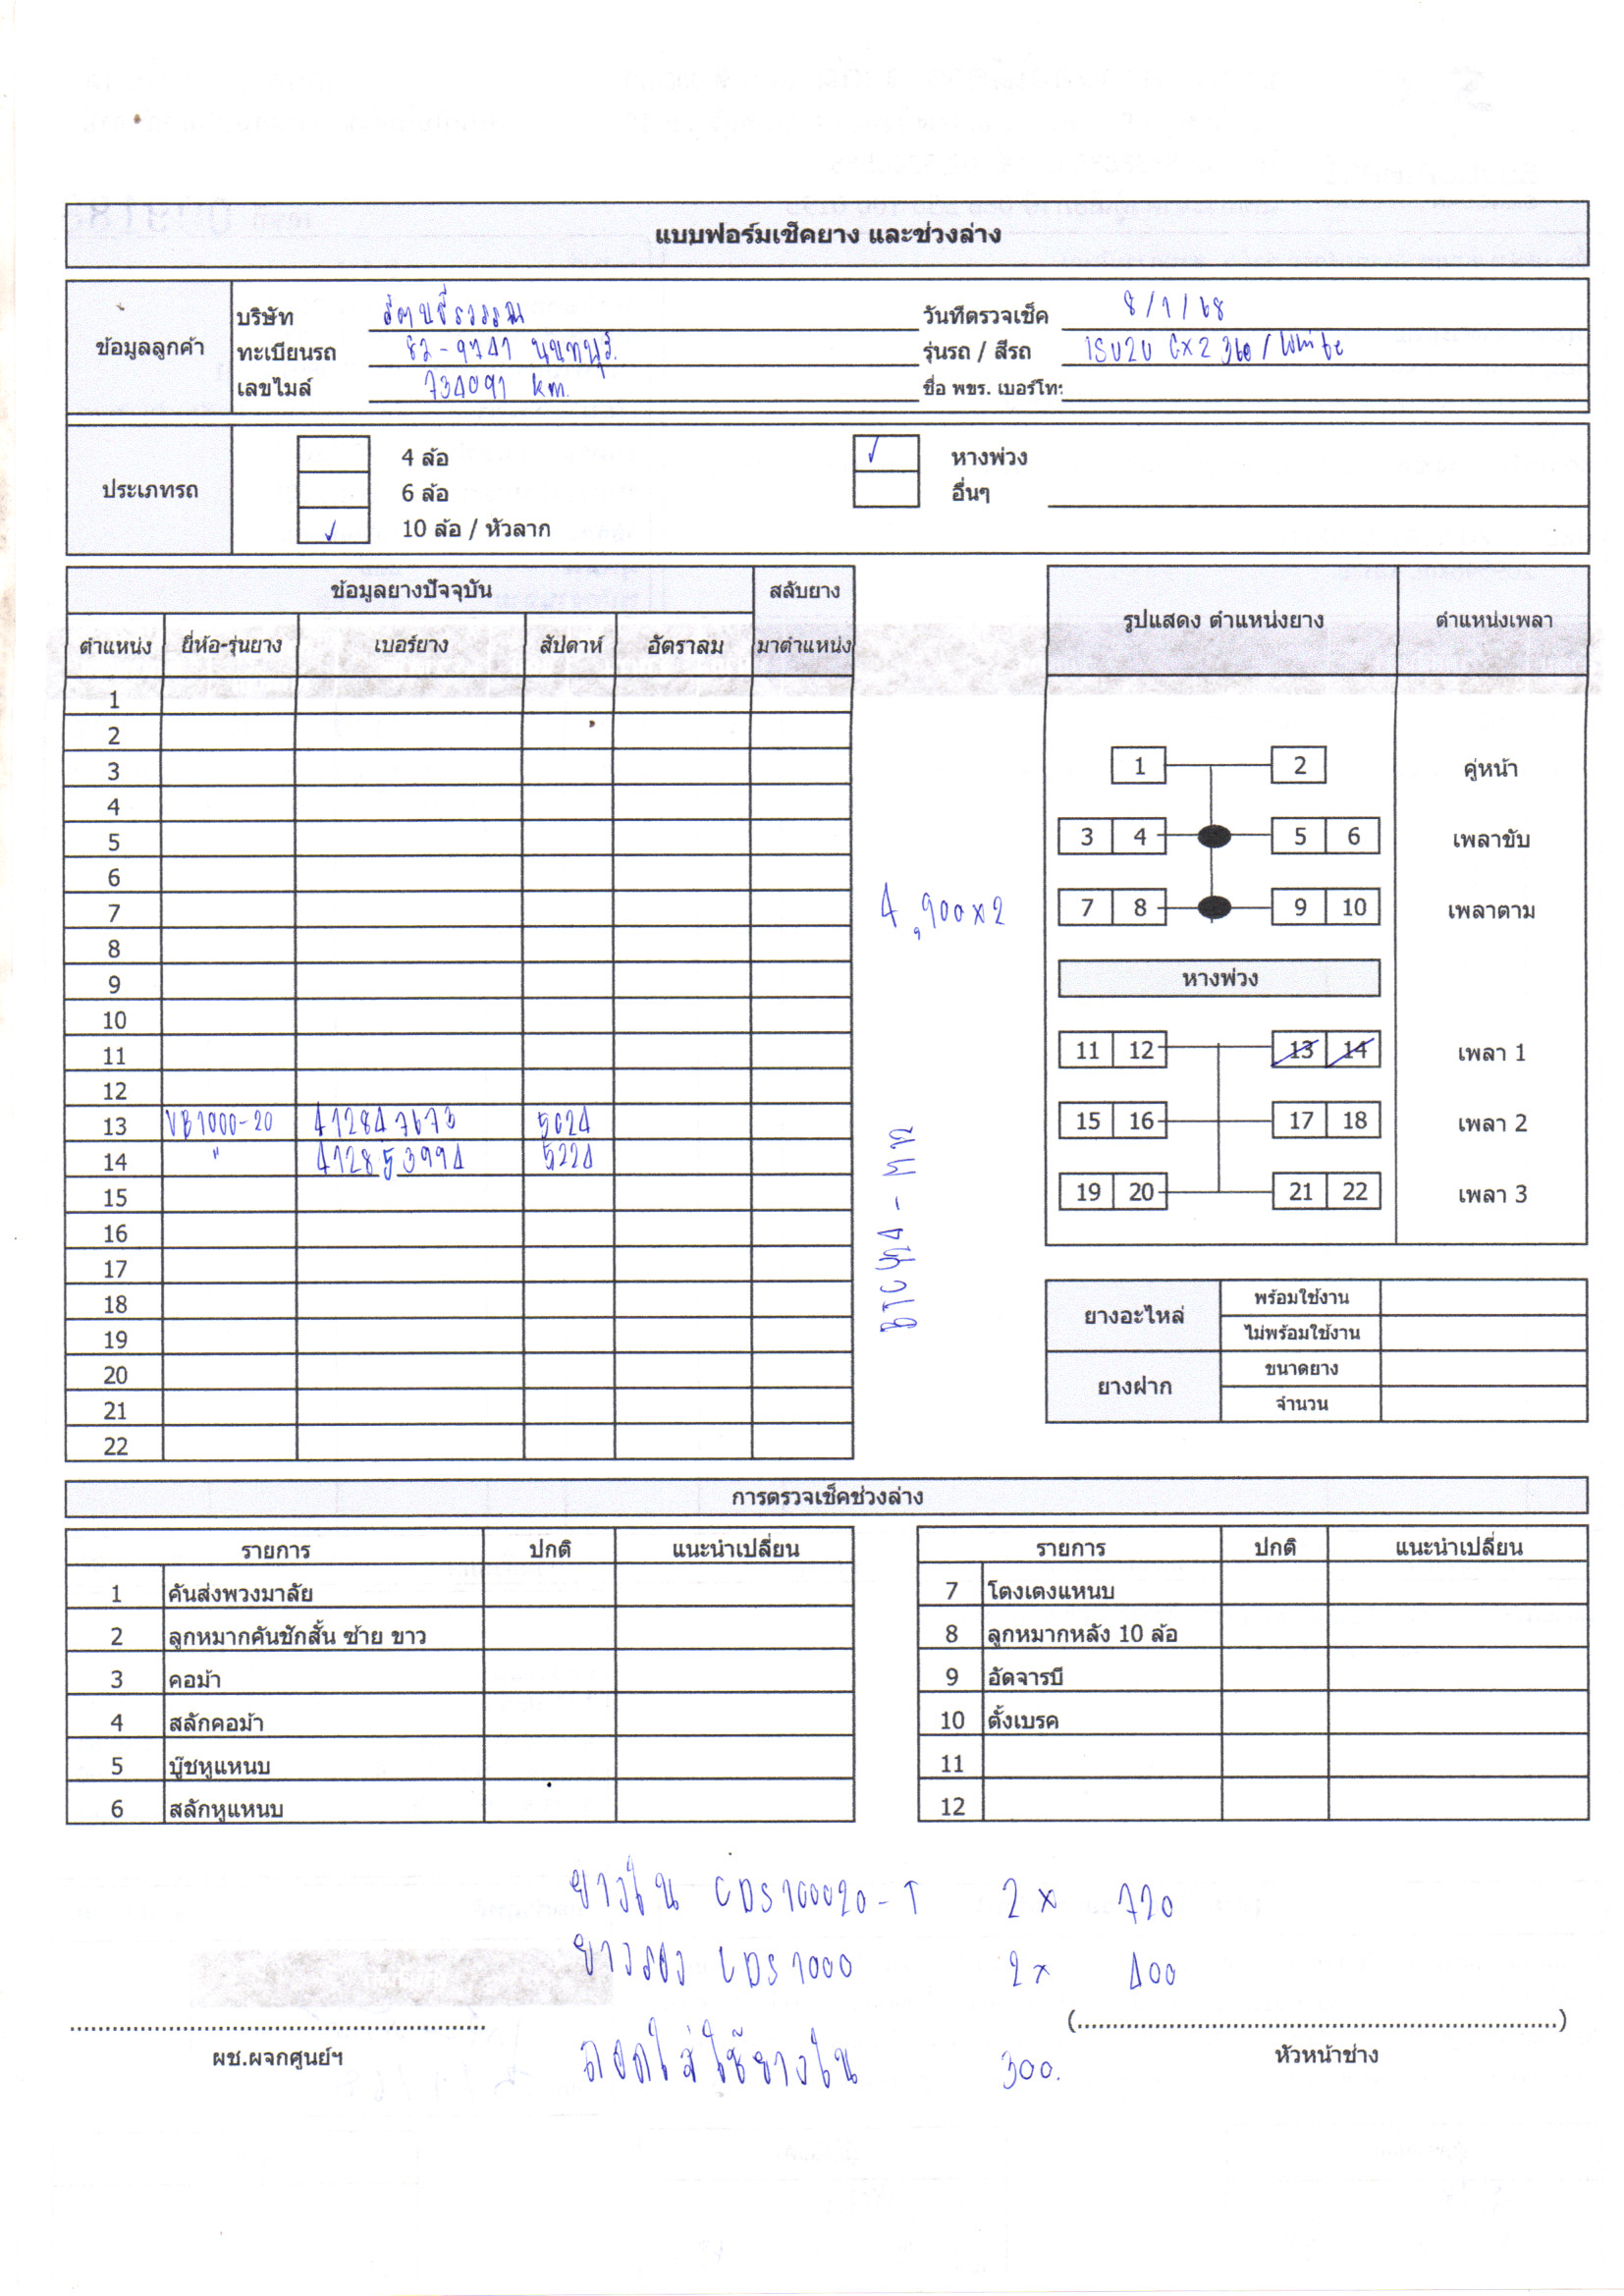 แบบฟอร์มเช็คยาง และช่วงล่าง
ข้อมูลลูกค้า
บริษัท
วันที่ตรวจเช็ค 8/1/68
ทะเบียนรถ 82-9741 นนทบุรี
รุ่นรถ / สีรถ ISUZU GXZ 360 / White
เลขไมล์ 734091 km.
ชื่อ พขร. เบอร์โท:
ประเภทรถ
4 ล้อ
6 ล้อ
✓ 10 ล้อ / หัวลาก
✓ หางพ่วง
อื่นๆ
ข้อมูลยางปัจจุบัน สลับยาง
ตำแหน่ง ยี่ห้อ-รุ่นยาง เบอร์ยาง สัปดาห์ อัตราลม มาตำแหน่ง
1
2
3
4
5
6
7
8
9
10
11
12
13 VB1000-20 412847673 5024
14 " 412853994 5224
15
16
17
18
19
20
21
22
4,900x2
รูปแสดง ตำแหน่งยาง ตำแหน่งเพลา
1 2 คู่หน้า
3 4 5 6 เพลาขับ
7 8 9 10 เพลาตาม
หางพ่วง
11 12 13 14 เพลา 1
15 16 17 18 เพลา 2
19 20 21 22 เพลา 3
ยางอะไหล่ พร้อมใช้งาน
ไม่พร้อมใช้งาน
ยางฝาก ขนาดยาง
จำนวน
การตรวจเช็คช่วงล่าง
รายการ ปกติ แนะนำเปลี่ยน
1 คันส่งพวงมาลัย
2 ลูกหมากคันชักสั้น ซ้าย ขาว
3 คอม้า
4 สลักคอม้า
5 บู๊ชหูแหนบ
6 สลักหูแหนบ
รายการ ปกติ แนะนำเปลี่ยน
7 โตงเตงแหนบ
8 ลูกหมากหลัง 10 ล้อ
9 อัดจารบี
10 ตั้งเบรค
11
12
ยางใน CDS100020-T 2 x 720
ยางรอง CDS1000 2 x 400
ถอดใส่ใช้ยางใน 300.
ผช.ผจกศูนย์ฯ
(....................)
หัวหน้าช่าง